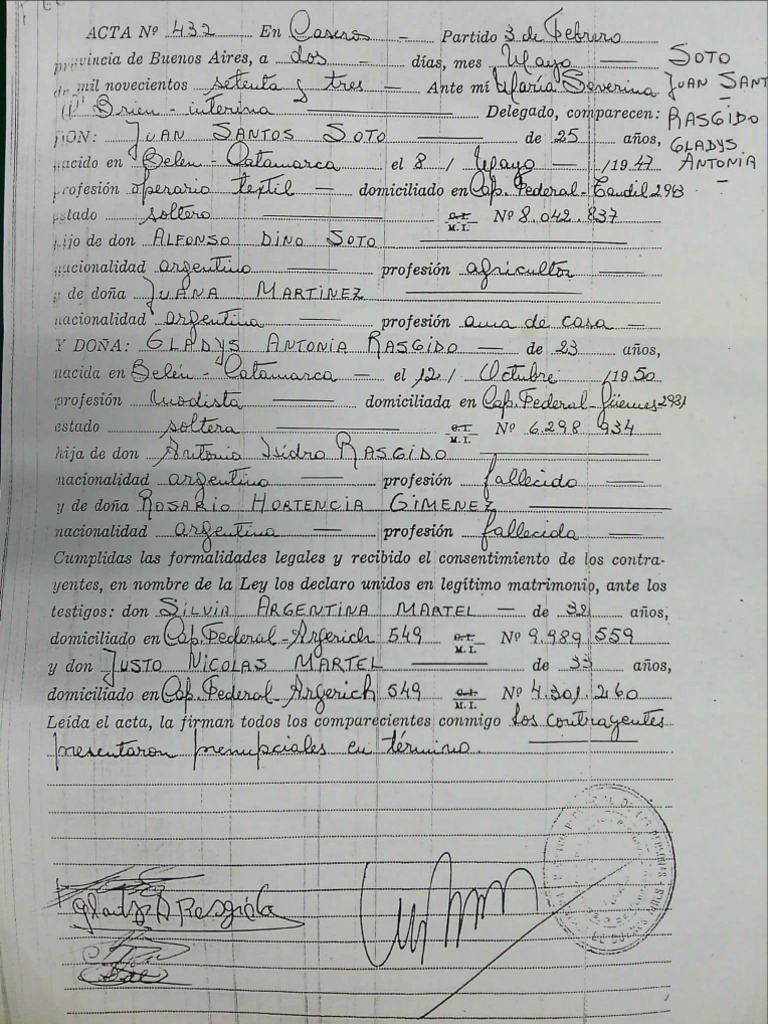 ACTA Nº 432 En Caseros - Partido 3 de Febrero
provincia de Buenos Aires, a dos - días, mes Mayo -
de mil novecientos setenta y tres - Ante mí María Severina
O'Brien - interina Delegado, comparecen:
SOTO
JUAN SANT
RASGIDO
GLADYS
ANTONIA
DON: JUAN SANTOS SOTO de 25 años,
nacido en Belén - Catamarca el 8 / Mayo - /1947
profesión operario textil - domiciliado en Cap. Federal - Tandil 2943
estado soltero C.I. M.I. Nº 8.042.837
hijo de don ALFONSO DINO SOTO
nacionalidad argentino profesión agricultor
y de doña JUANA MARTINEZ
nacionalidad argentina profesión ama de casa -
Y DOÑA: GLADYS ANTONIA RASGIDO - de 23 años,
nacida en Belén - Catamarca - el 12 / Octubre /1950
profesión modista domiciliada en Cap. Federal - Güemes 2931
estado soltera C.I. M.I. Nº 6.298 934
hija de don Antonio Isidro RASGIDO
nacionalidad argentino - profesión fallecido
y de doña ROSARIO HORTENCIA GIMENEZ
nacionalidad argentina profesión fallecida
Cumplidas las formalidades legales y recibido el consentimiento de los contra-
yentes, en nombre de la Ley los declaro unidos en legítimo matrimonio, ante los
testigos: don SILVIA ARGENTINA MARTEL - de 32 años,
domiciliado en Cap. Federal - Argerich 549 C.I. M.I. Nº 9.989 559
y don JUSTO NICOLAS MARTEL de 33 años,
domiciliado en Cap. Federal - Argerich 549 C.I. M.I. Nº 4.301.260
Leída el acta, la firman todos los comparecientes conmigo Los contragentes
presentaron prenupciales en término.
Gladys A Rasgido